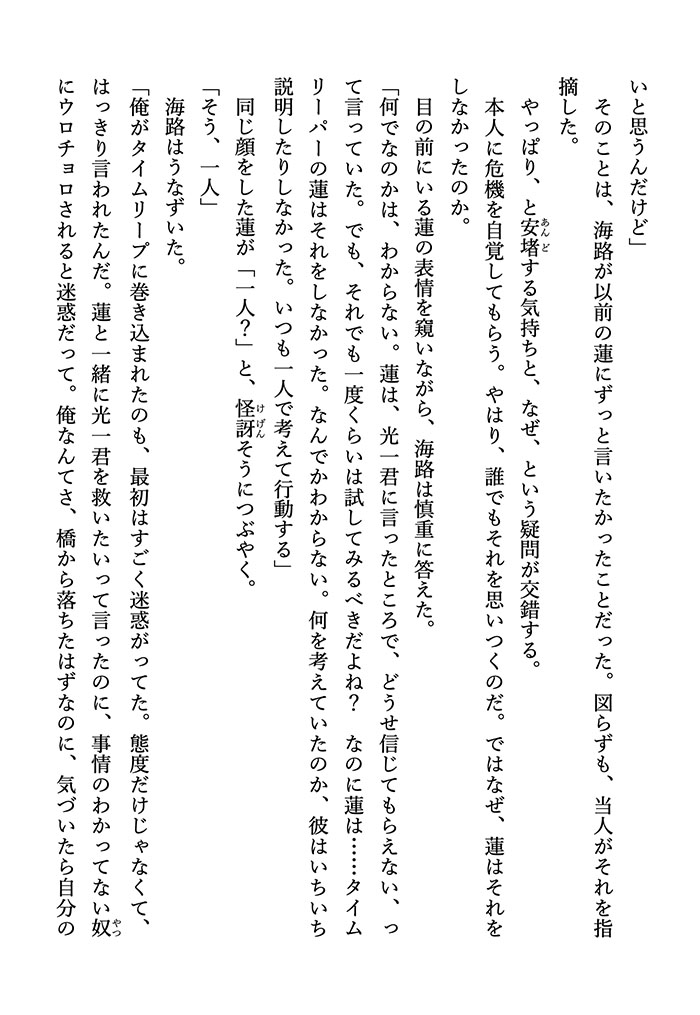 いと思うんだけど」
　そのことは、海路が以前の蓮にずっと言いたかったことだった。図らずも、当人がそれを指
摘した。
　やっぱり、と安堵する気持ちと、なぜ、という疑問が交錯する。
　本人に危機を自覚してもらう。やはり、誰でもそれを思いつくのだ。ではなぜ、蓮はそれを
しなかったのか。
　目の前にいる蓮の表情を窺いながら、海路は慎重に答えた。
「何でなのかは、わからない。蓮は、光一君に言ったところで、どうせ信じてもらえない、っ
て言っていた。でも、それでも一度くらいは試してみるべきだよね？　なのに蓮は……タイム
リーパーの蓮はそれをしなかった。なんでかわからない。何を考えていたのか、彼はいちいち
説明したりしなかった。いつも一人で考えて行動する」
　同じ顔をした蓮が「一人？」と、怪訝そうにつぶやく。
「そう、一人」
　海路はうなずいた。
「俺がタイムリープに巻き込まれたのも、最初はすごく迷惑がってた。態度だけじゃなくて、
はっきり言われたんだ。蓮と一緒に光一君を救いたいって言ったのに、事情のわかってない奴
にウロチョロされると迷惑だって。俺なんてさ、橋から落ちたはずなのに、気づいたら自分の